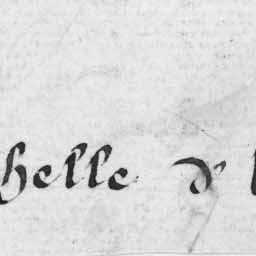 helle d